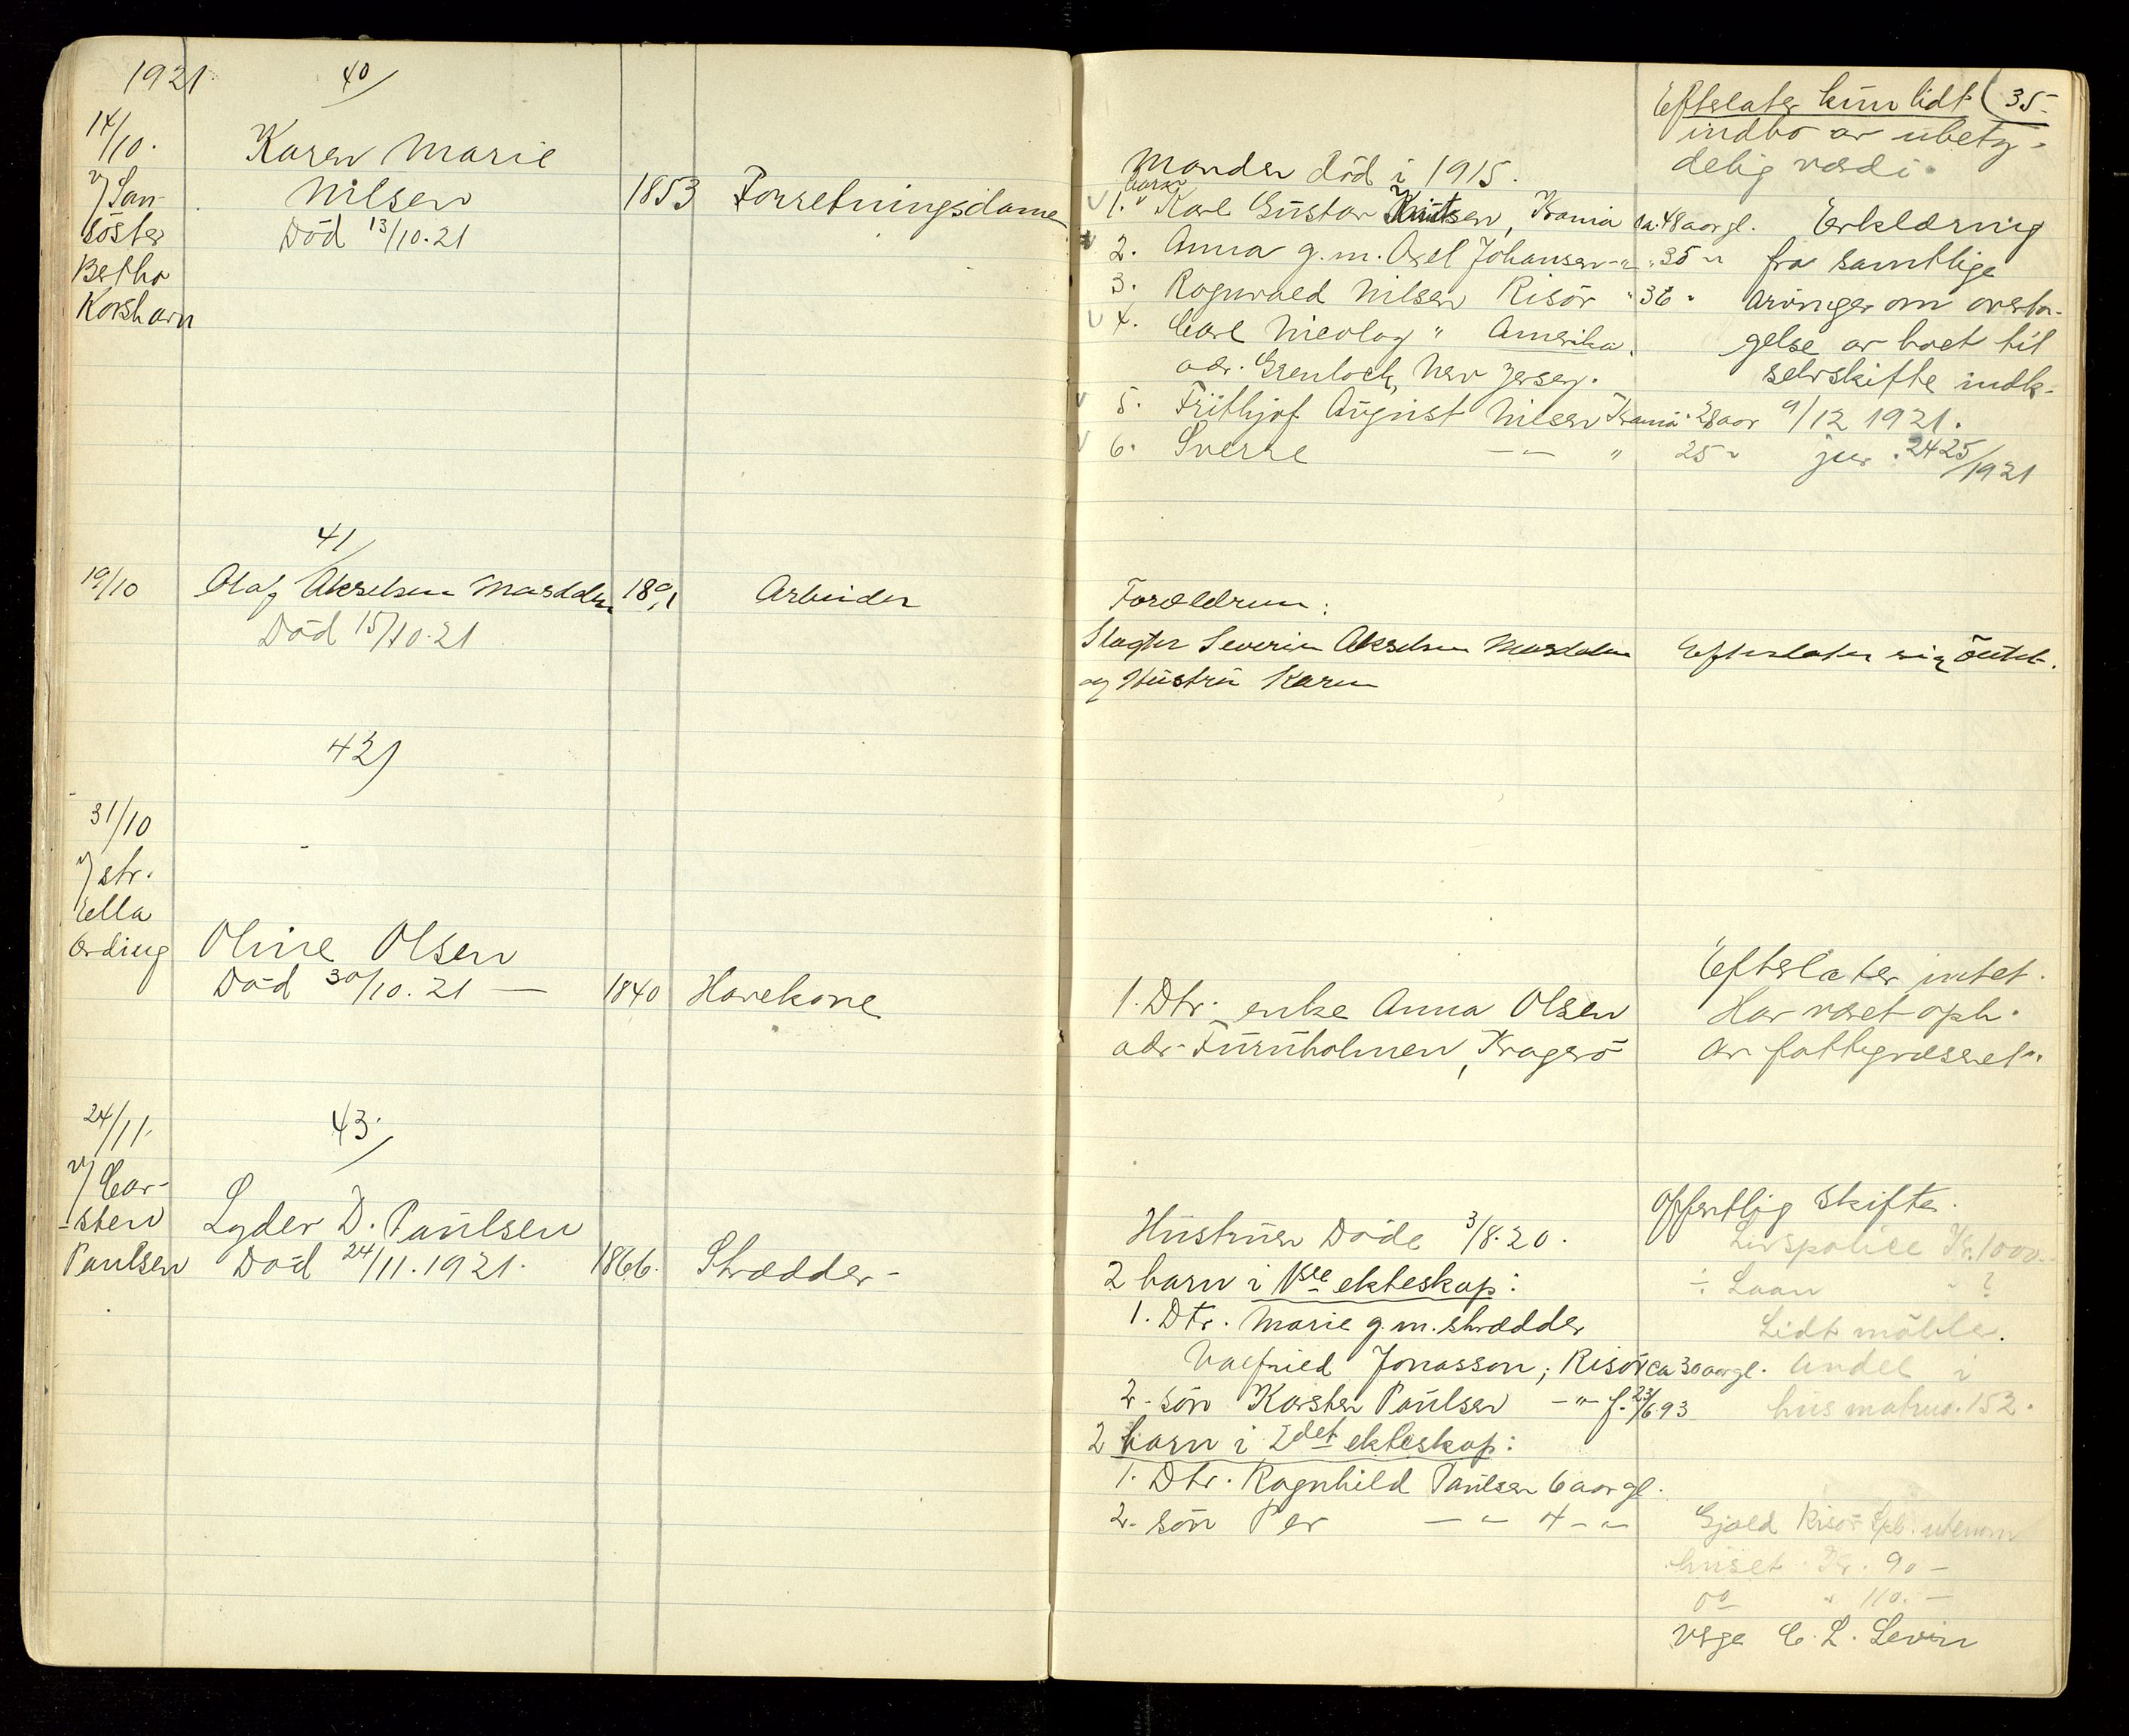 1921
40/
14/10.
v/ San-
söster
Betha
Korshavn
Karen Marie
Nilsen
Död 13/10.21
1853
Forretningsdame
41/
19/10
Olaf Akselsen Mosdalen
Död 15/10.21
1891
Arbeider
42)
31/10
v/ str.
Ella
Ording
Oline Olsen
Död 30/10.21 —
1840
Havekone
43/
24/11.
v/ Car-
-sten
Paulsen
Lyder D. Paulsen
Död 24/11.1921.
1866.
Skrædder-
(35-
Manden död i 1915.
barn
1. Karl Gustav Knutsen, Krania ca. 48 aar gl.
2. Anna g.m. Axel Johansen -"- " 35 "
3. Ragnvald Nilsen Risör " 36 "
4. Carl Nicolay " Amerika.
adr. Grenlock, New Jersey.
5. Frithjof August Nilsen Krania 28 aar
6. Sverre -"- " 25 "
Efterlater kun lidt
indbo av ubety-
delig værdi.
Erklæring
fra samtlige
arvinger om overta-
gelse av boet til
selvskifte indk.
9/12 1921.
jnr. 2425/1921
Forældrene:
Slagter Severin Akselsen Mosdalen
og Hustru Karen
Efterlater sig intet.
1. Dtr. enke Anna Olsen
adr. Furuholmen, Kragerö
Efterlater intet.
Har været oph.
av fattigvæsenet.
Hustruen Döde 3/8.20.
2 barn i 1ste ekteskap:
1. Dtr. Marie g.m. skrædder
Valfried Jonasson, Risör ca 30 aar gl.
2. sön Karsten Paulsen -"- f. 23/6.93
2 barn i 2det ekteskap:
1. Dtr. Ragnhild Paulsen 6 aar gl.
2. sön Per -"- 4 -"-
Offentlig Skifte.
Livspolice Kr. 1000.-
÷ Laan " ?
Lidt möble.
Andel i
hus matrno. 152.
Gjæld Risör Spb. utenom
huset Kr. 90 -
do " 110. -
Verge C. L. Levin